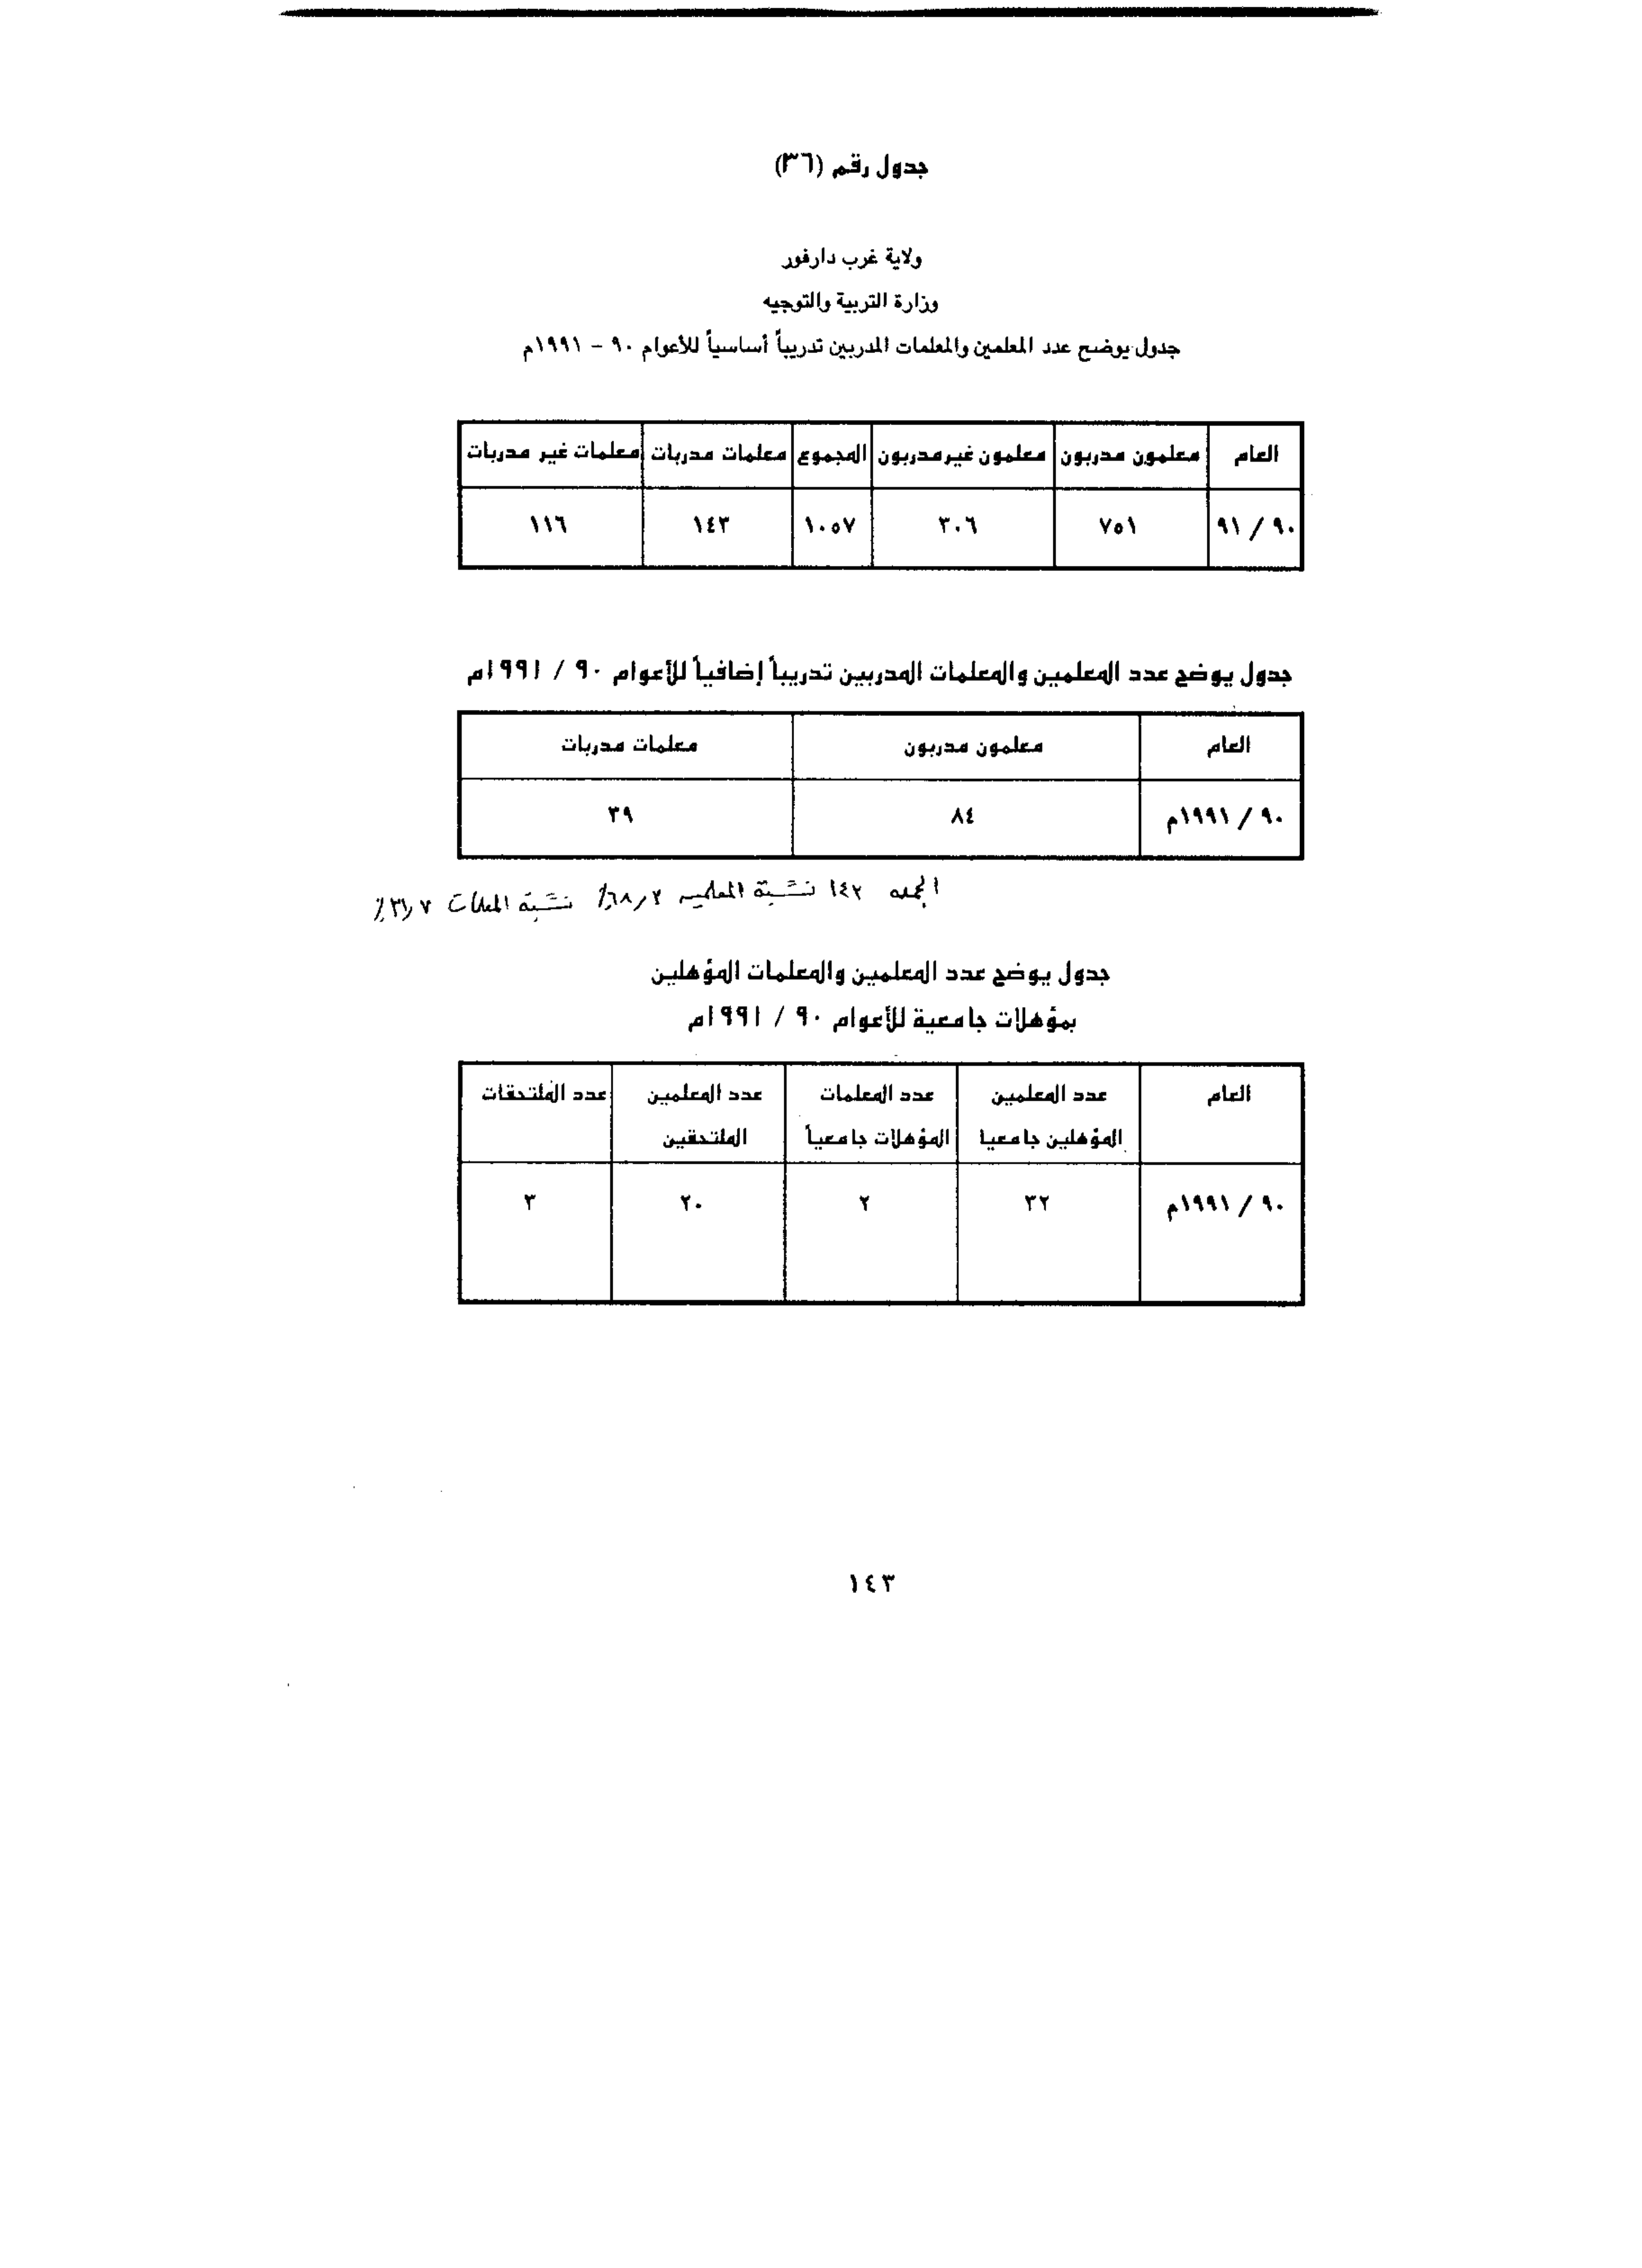 جدول رقم (٣٦)
ولاية غرب دارفور
وزارة التربية والتوجيه
جدول يوضح عدد المعلمين والمعلمات المدربين تدريباً أساسياً للأعوام ٩٠ – ١٩٩١م
العام معلمون مدربون معلمون غيرمدربون المجموع معلمات مدربات معلمات غير مدربات
٩٠ / ٩١ ٧٥١ ٣٠٦ ١٠٥٧ ١٤٣ ١١٦
جدول يوضح عدد المعلمين والمعلمات المدربين تدريباً إضافياً للأعوام ٩٠ / ١٩٩١م
العام معلمون مدربون معلمات مدربات
٩٠ / ١٩٩١م ٨٤ ٣٩
الجمله ١٤٢ نسبة المعلمين ٦٨٫٣٪ نسبة المعلمات ٣١٫٧٪
جدول يوضح عدد المعلمين والمعلمات المؤهلين
بمؤهلات جامعية للأعوام ٩٠ / ١٩٩١م
العام عدد المعلمين عدد المعلمات عدد المعلمين عدد الملتحقات
المؤهلين جامعيا المؤهلات جامعياً الملتحقين
٩٠ / ١٩٩١م ٣٢ ٢ ٢٠ ٣
١٤٣